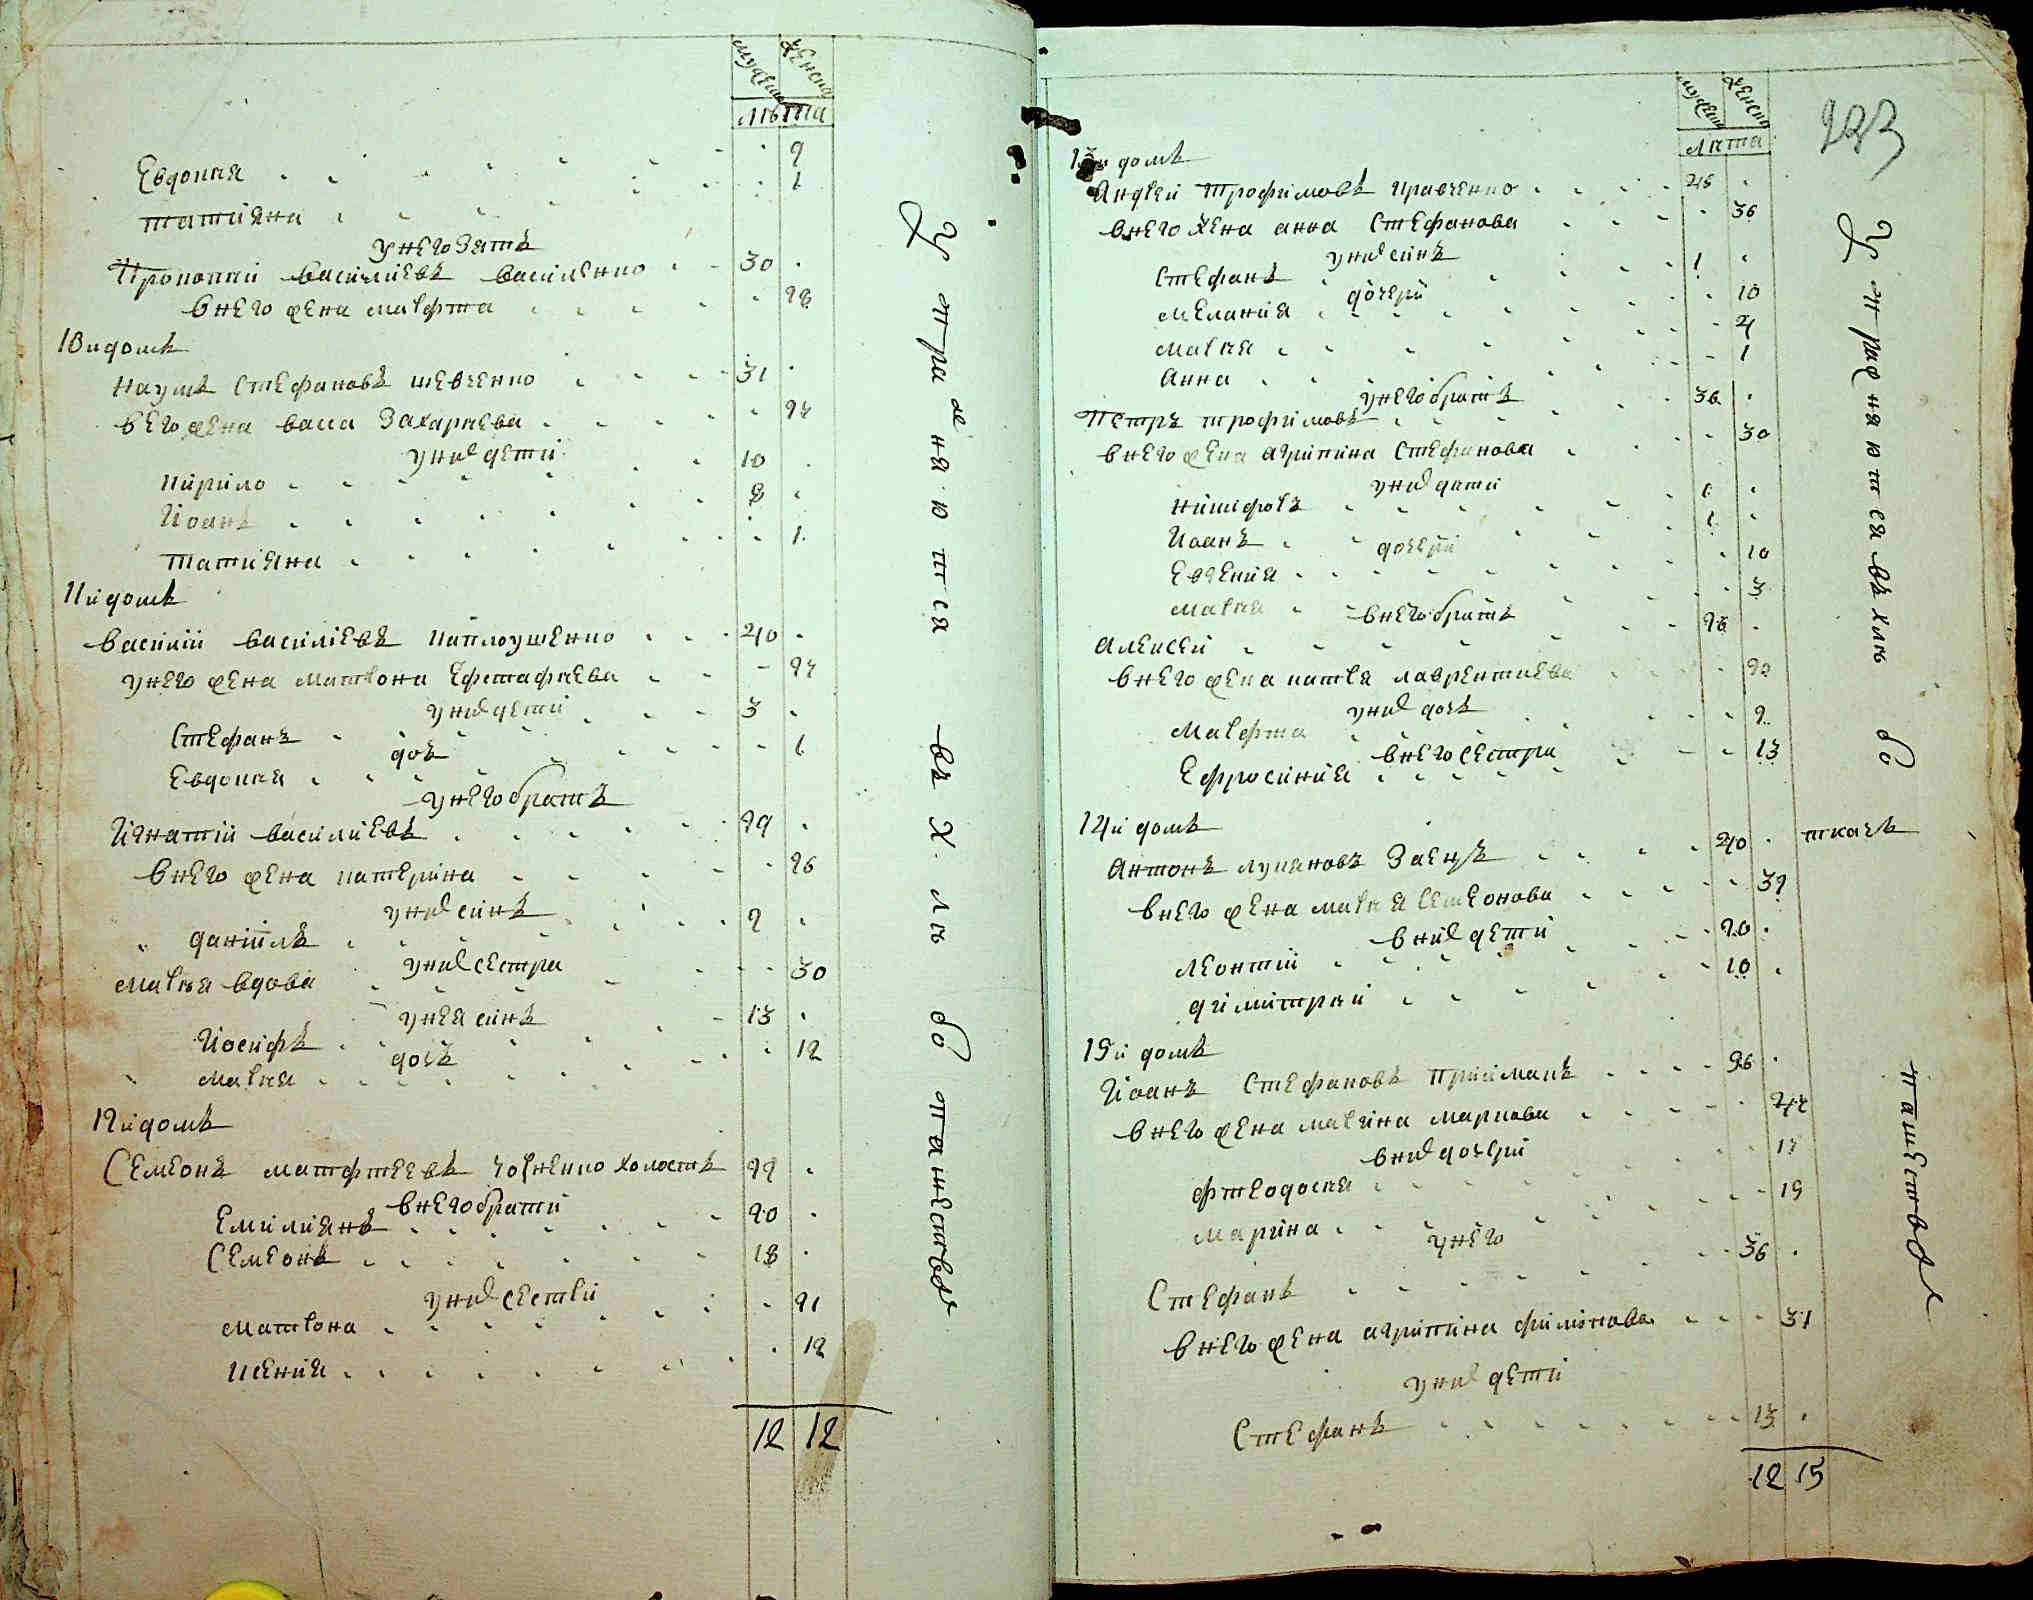 мужеска женска
лѣта
Евдокия 9
татияна 1
унего зять
Прокопий василиевъ василенко 30
внего жена марфта 28
10й домъ
Наумъ Стефановъ шевченко 31
вего жена васса Захариева 27
уних дети
Кирило 10
Иоанъ 8
татияна 1
11й домъ
василий василиевъ каплоушенко 40
унего жена матрона Ефстафиева 27
уних дети
Стефанъ 3
дочь
Евдокия 1
унего братъ
Игнатий василиевъ 29
внего жена катерина 26
уних синъ
даниилъ 2
уних сестра
Мария вдова 30
унея синъ
Иосифъ 13
дочь
Мария 12
12й домъ
Семеонъ матфтеевъ холостъ 29
внего брати
Емилиянъ 20
Семеонъ 18
уних сестри
матрона 21
ксения 12
12 12
Упражняются въ хлѣбопашествѣ
мужеска женска
лѣта
13й домъ
Андрей трофимовъ кравченко 45
внего жена анна Стефанова 36
уних синъ
Стефанъ 1
дочери
Мелания 10
Мария 4
Анна 1
унего братъ
Петръ трофимовъ 36
внего жена агрипина Стефанова 30
уних дети
Никифоръ
Иоанъ
дочери
Евгения 10
Мария 3
внего братъ
Алексей 28
внего жена катря лаврентиева
уних дочь
Марфта 2
внего сестра
Ефросиния 13
14й домъ
Антонъ лукяновъ Заецъ 40 ткачь
внего жена мария Семеонова 39
вних дети
Леонтий 20
димитрий 10
15й домъ
Иоанъ Стефановъ Приймакъ
внего жена марина маркова 47
вних дочери
Фтеодосия 17
Марина 15
унего
Стефанъ 36
внего жена агрипина филимонова 31
уних дети
Стефанъ 13
12 15
Упражняются въ хлѣбопашествѣ